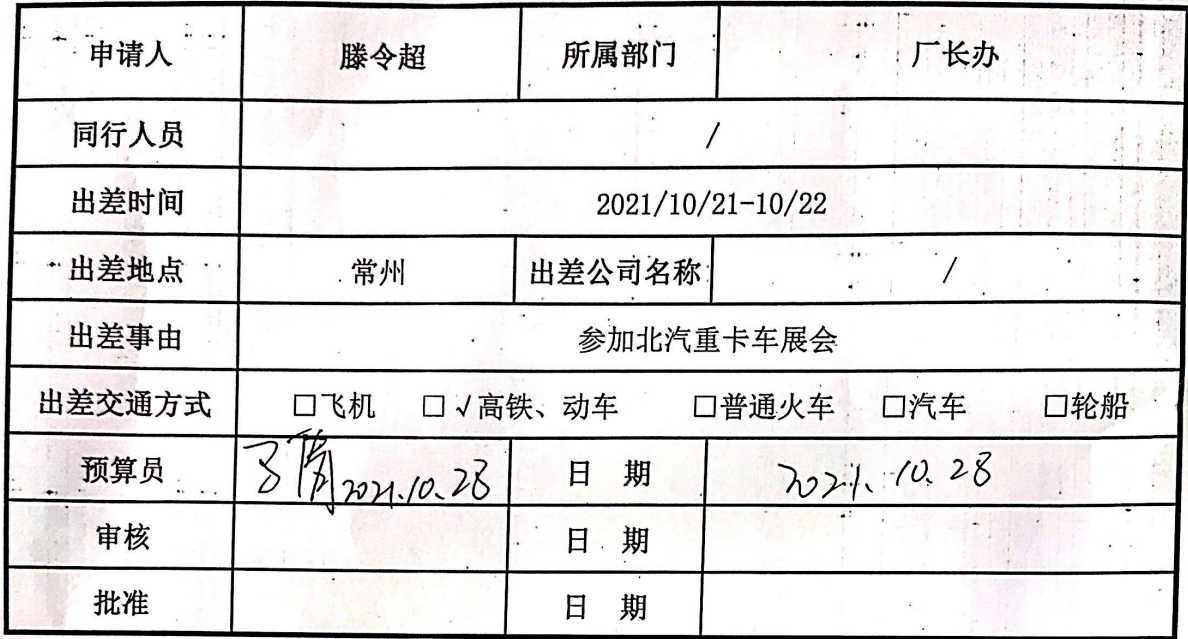 申请人 滕令超 所属部门 厂长办
同行人员 /
出差时间 2021/10/21-10/22
出差地点 常州 出差公司名称 /
出差事由 参加北汽重卡车展会
出差交通方式 □飞机 □√高铁、动车 □普通火车 □汽车 □轮船
预算员 2021.10.28 日 期 2021.10.28
审核 日 期
批准 日 期